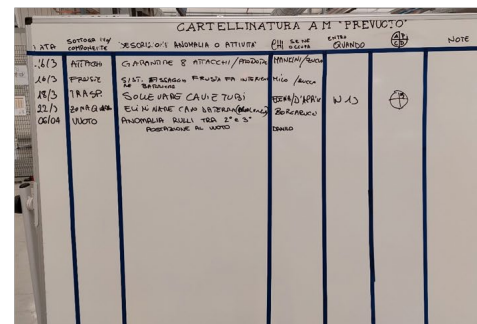 CARTELLINATURA AM "PREVUOTO"
DATA SOTTOGR. / COMPONENTE DESCRIZIONI ANOMALIA O ATTIVITA' CHI SE NE OCCUPA ENTRO QUANDO A P C D NOTE
16/3 ATTACCHI GARANTIRE 8 ATTACCHI / MANCINI/
16/3 FRUSTE SIST. FISSAGGIO FRUSTA FA Mico /
18/3 TRASP. SOLLEVARE CAVI E TUBI W 13
22/3 ZONA ELIMINARE CAVO BATTERIA
06/04 VUOTO ANOMALIA RULLI TRA 2° E 3°
POSTAZIONE AL VUOTO DANILO